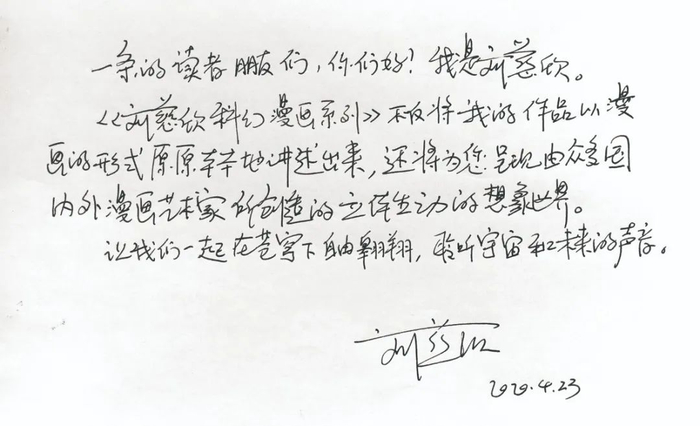 一条的读者朋友们，你们好！我是刘慈欣。
《刘慈欣科幻漫画系列》不仅将我的作品以漫
画的形式原原本本地讲述出来，还将为您呈现由众多国
内外漫画艺术家所创造的立体生动的想象世界。
让我们一起在苍穹下自由翱翔，聆听宇宙和未来的声音。
刘慈欣
2020.4.23